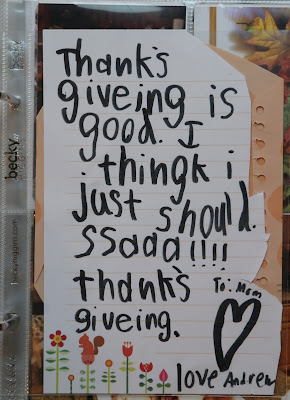 Thank's
giveing is
good. I
thingk i
just should.
ssaaa!!!!
thank's
giveing.
To: Mom
love Andrew
becky